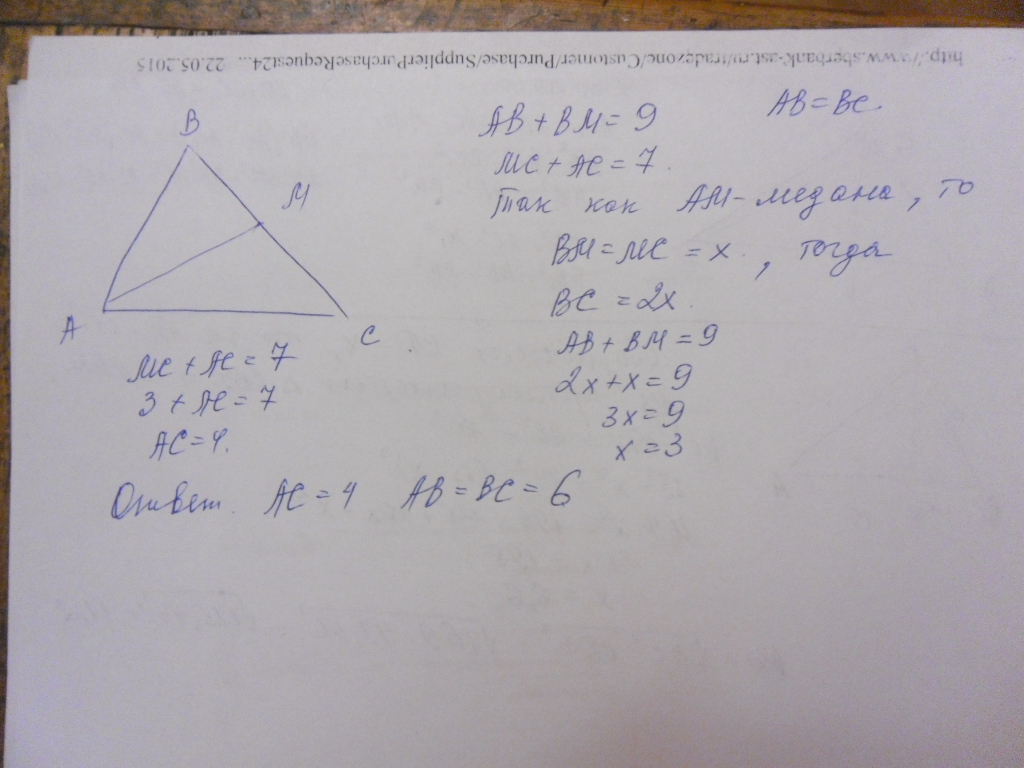 http://www.sberbank-ast.ru/tradezone/Customer/Purchase/SupplierPurchase/PurchaseRequest24... 22.05.2015
B
M
A
C
AB + BM = 9
AB = BC.
MC + AC = 7.
Так как AM - медана, то
BM = MC = x, тогда
BC = 2x.
AB + BM = 9
2x + x = 9
3x = 9
x = 3
MC + AC = 7
3 + AC = 7
AC = 4.
Ответ. AC = 4 AB = BC = 6